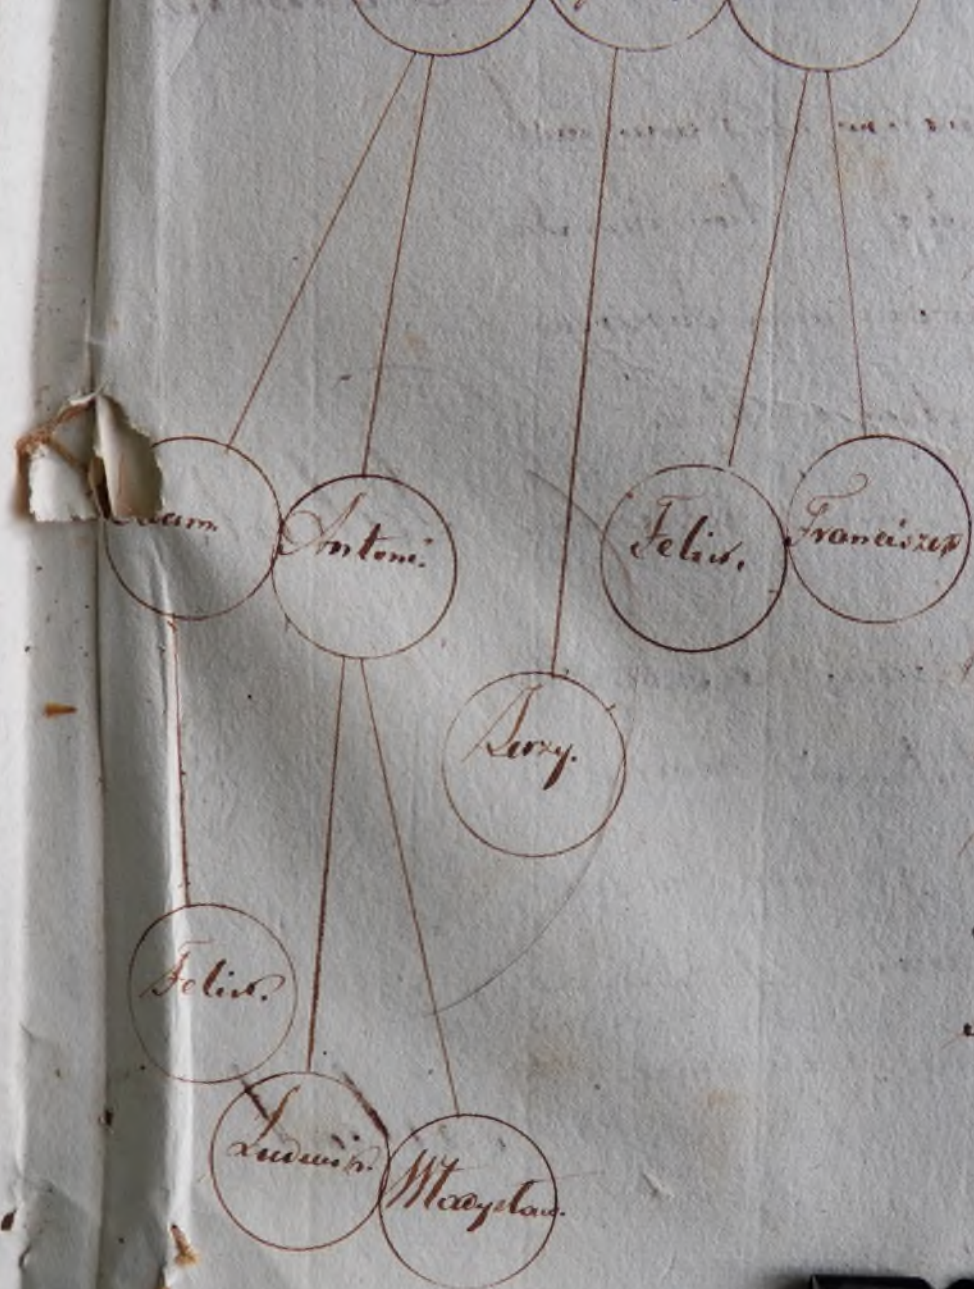 Adam.
Antoni.
Felix.
Franciszek
Jerzy.
Felix.
Ludwik.
Władysław.